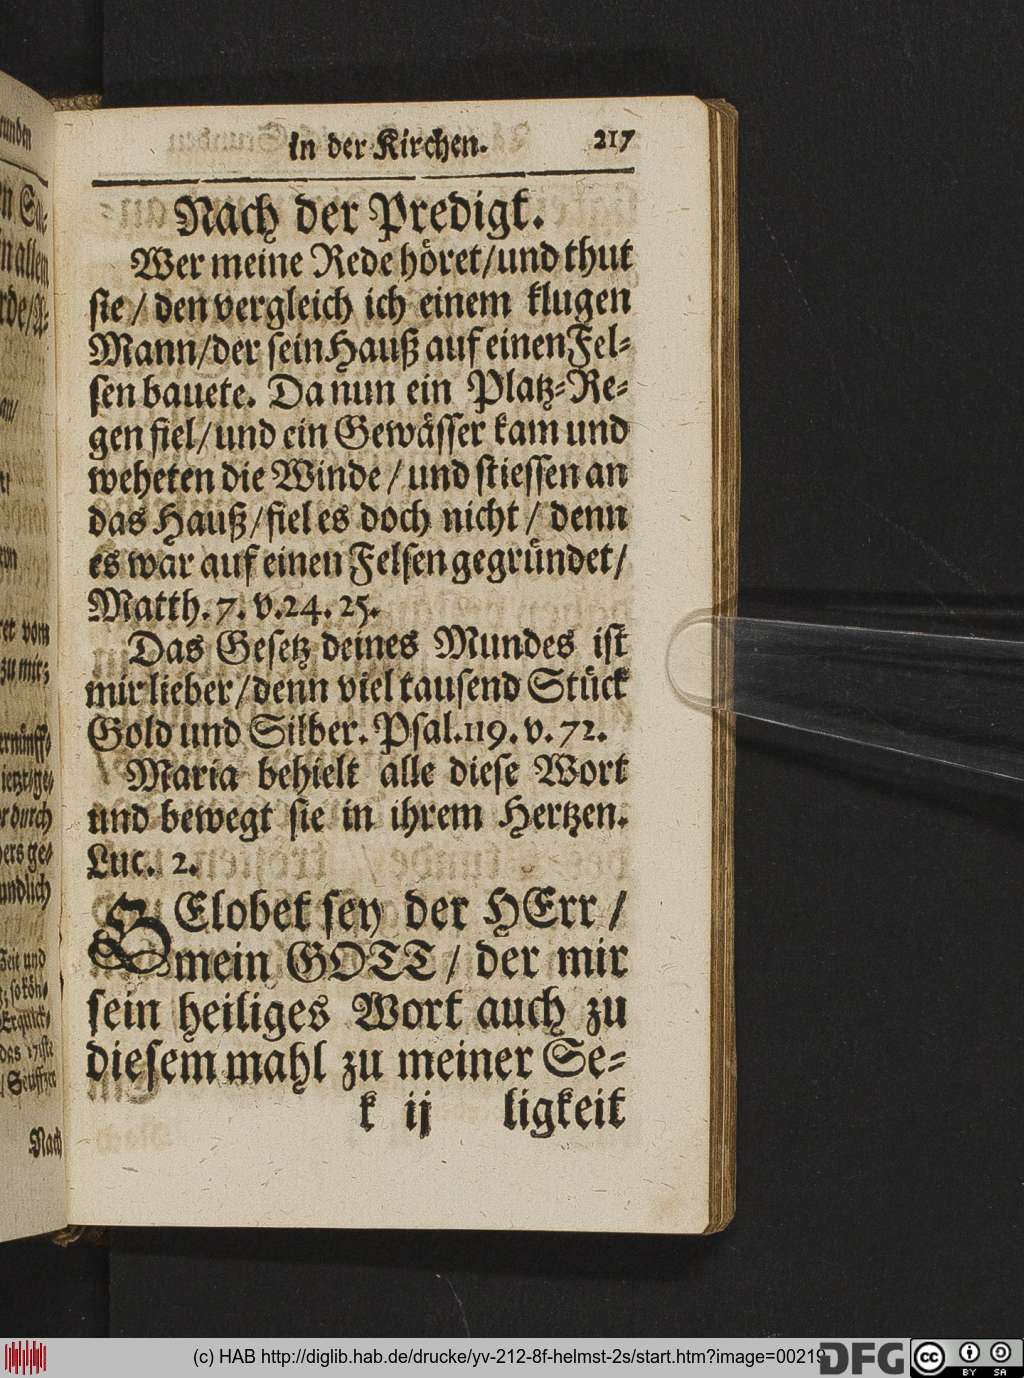 in der Kirchen.
217
Nach der Predigt.
Wer meine Rede höret/und thut
sie / den vergleich ich einem klugen
Mann/der sein Hauß auf einen Fel-
sen bauete. Da nun ein Platz-Re-
gen fiel/und ein Gewässer kam und
weheten die Winde / und stiessen an
das Hauß/fiel es doch nicht / denn
es war auf einen Felsen gegründet/
Matth. 7. v. 24. 25.
Das Gesetz deines Mundes ist
mir lieber/denn viel tausend Stück
Gold und Silber. Psal. 119. v. 72.
Maria behielt alle diese Wort
und bewegt sie in ihrem Hertzen.
Luc. 2.
GElobet sey der HErr /
mein GOTT / der mir
sein heiliges Wort auch zu
diesem mahl zu meiner Se-
k ij ligkeit
vom
zu mir;
durch
Zeit und
Nach
(c) HAB http://diglib.hab.de/drucke/yv-212-8f-helmst-2s/start.htm?image=00219
DFG
cc
BY SA